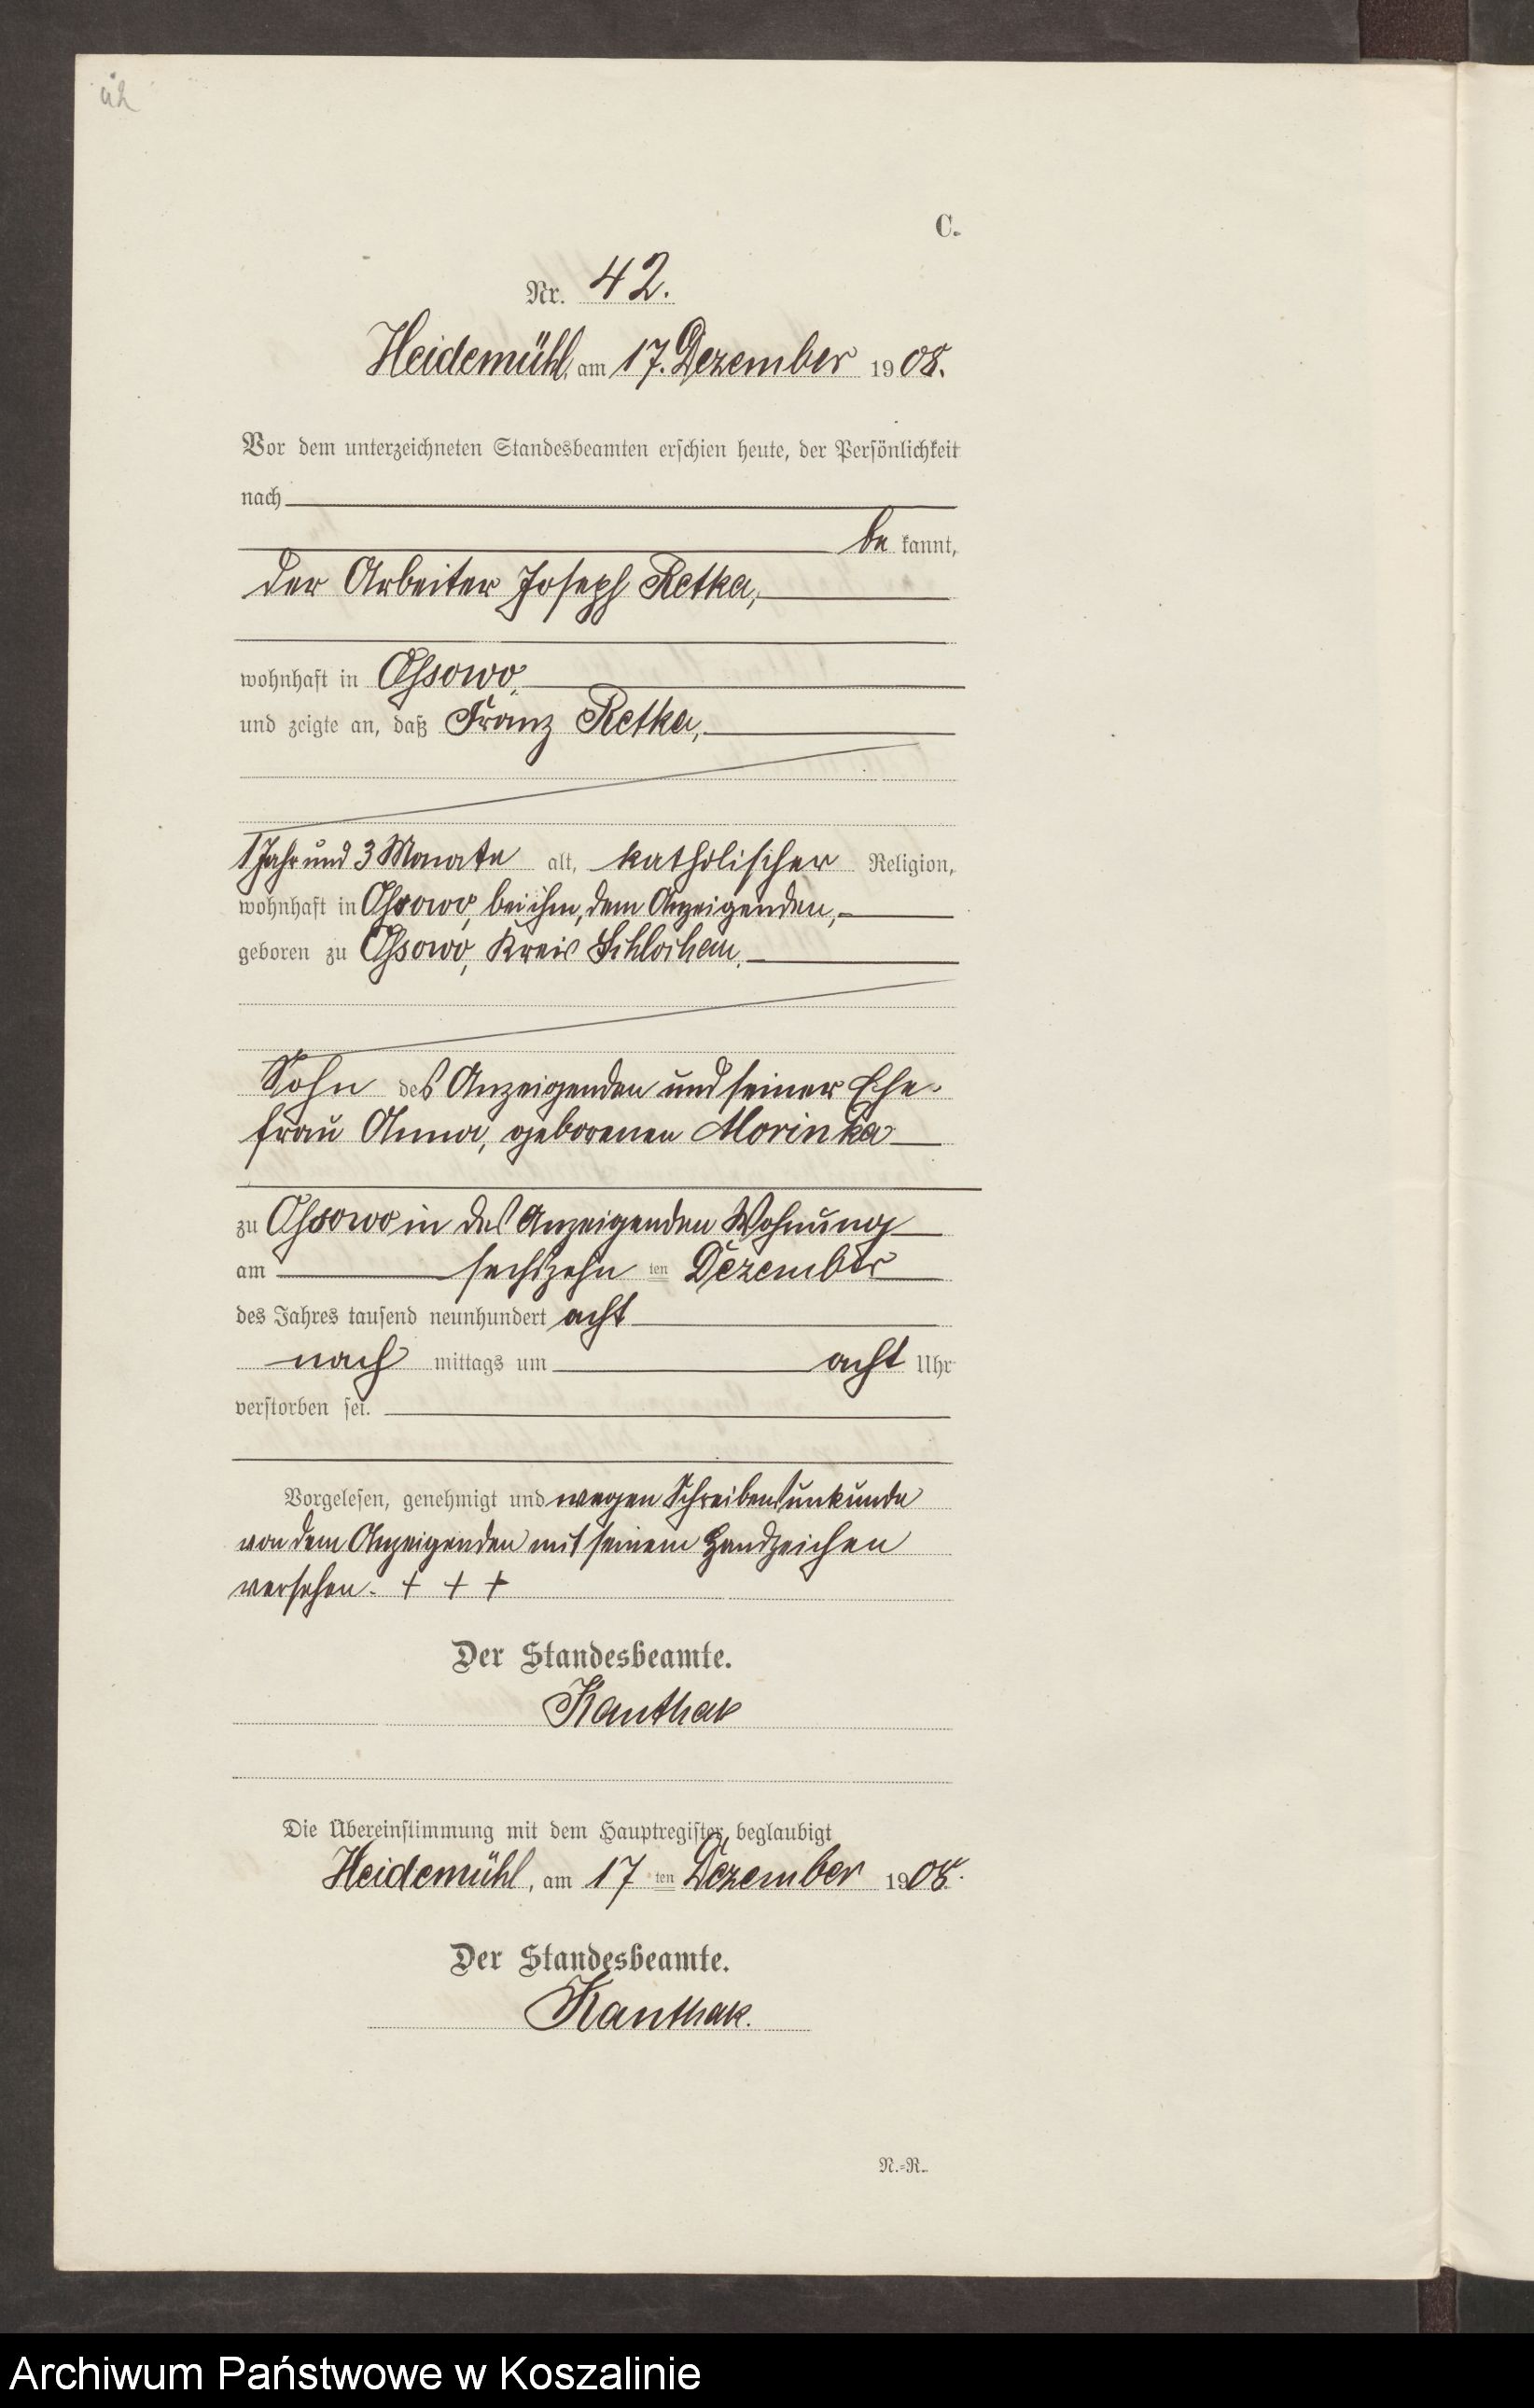 C.
Nr. 42.
Heidemühl, am 17. Dezember 1908.
Vor dem unterzeichneten Standesbeamten erschien heute, der Persönlichkeit
nach
be kannt,
der Arbeiter Joseph Retka,
wohnhaft in Ossowo,
und zeigte an, daß Franz Retka,
1 Jahr und 3 Monate alt, katholischer Religion,
wohnhaft in Ossowo, bei ihm, dem Anzeigenden,
geboren zu Ossowo, Kreis Schlochau,
Sohn des Anzeigenden und seiner Ehe-
frau Anna, geborenen Morinka
zu Ossowo in des Anzeigenden Wohnung
am sechszehn ten Dezember
des Jahres tausend neunhundert acht
nach mittags um acht Uhr
verstorben sei.
Vorgelesen, genehmigt und wegen Schreibensunkunde
von dem Anzeigenden mit seinem Handzeichen
versehen. + + +
Der Standesbeamte.
Kanthak
Die Übereinstimmung mit dem Hauptregister beglaubigt
Heidemühl, am 17 ten Dezember 1908.
Der Standesbeamte.
Kanthak.
N.=R.
Archiwum Państwowe w Koszalinie